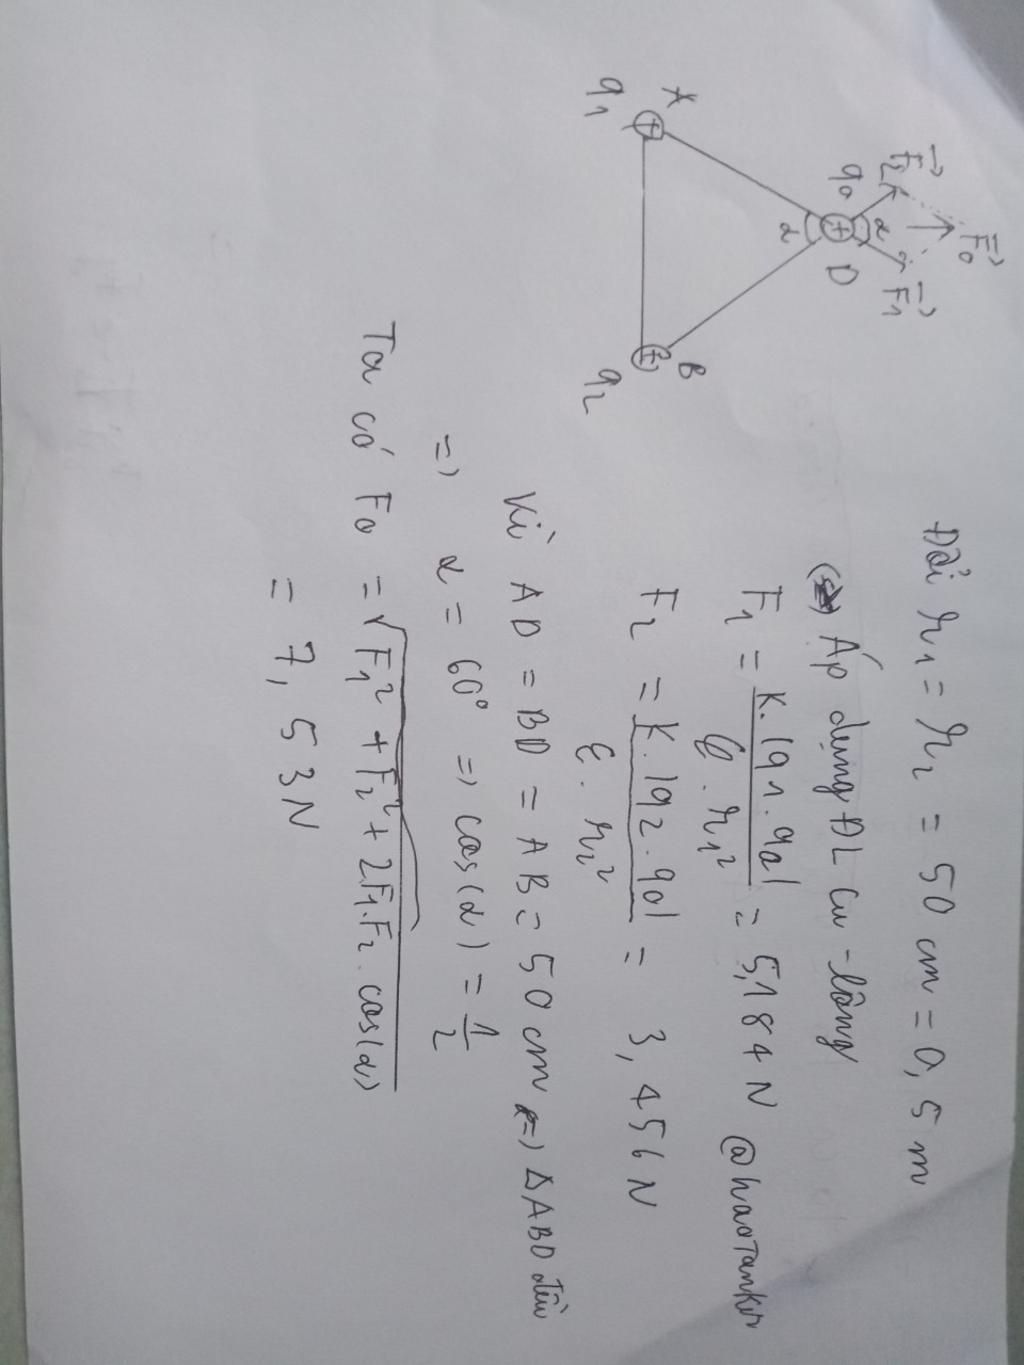 F₂⃗
F₀⃗
q₀
α
F₁⃗
D
α
A
q₁
B
q₂
Đổi r₁ = r₂ = 50 cm = 0,5 m
Áp dụng ĐL Cu-lông
F₁ = K.|q₁.q₀| / ε.r₁² = 5,184 N @haotanker
F₂ = K.|q₂.q₀| / ε.r₂² = 3,456 N
Vì AD = BD = AB = 50 cm => ΔABD đều
=> α = 60° => cos(α) = 1/2
Ta có F₀ = √(F₁² + F₂² + 2F₁.F₂.cos(α))
= 7,53N